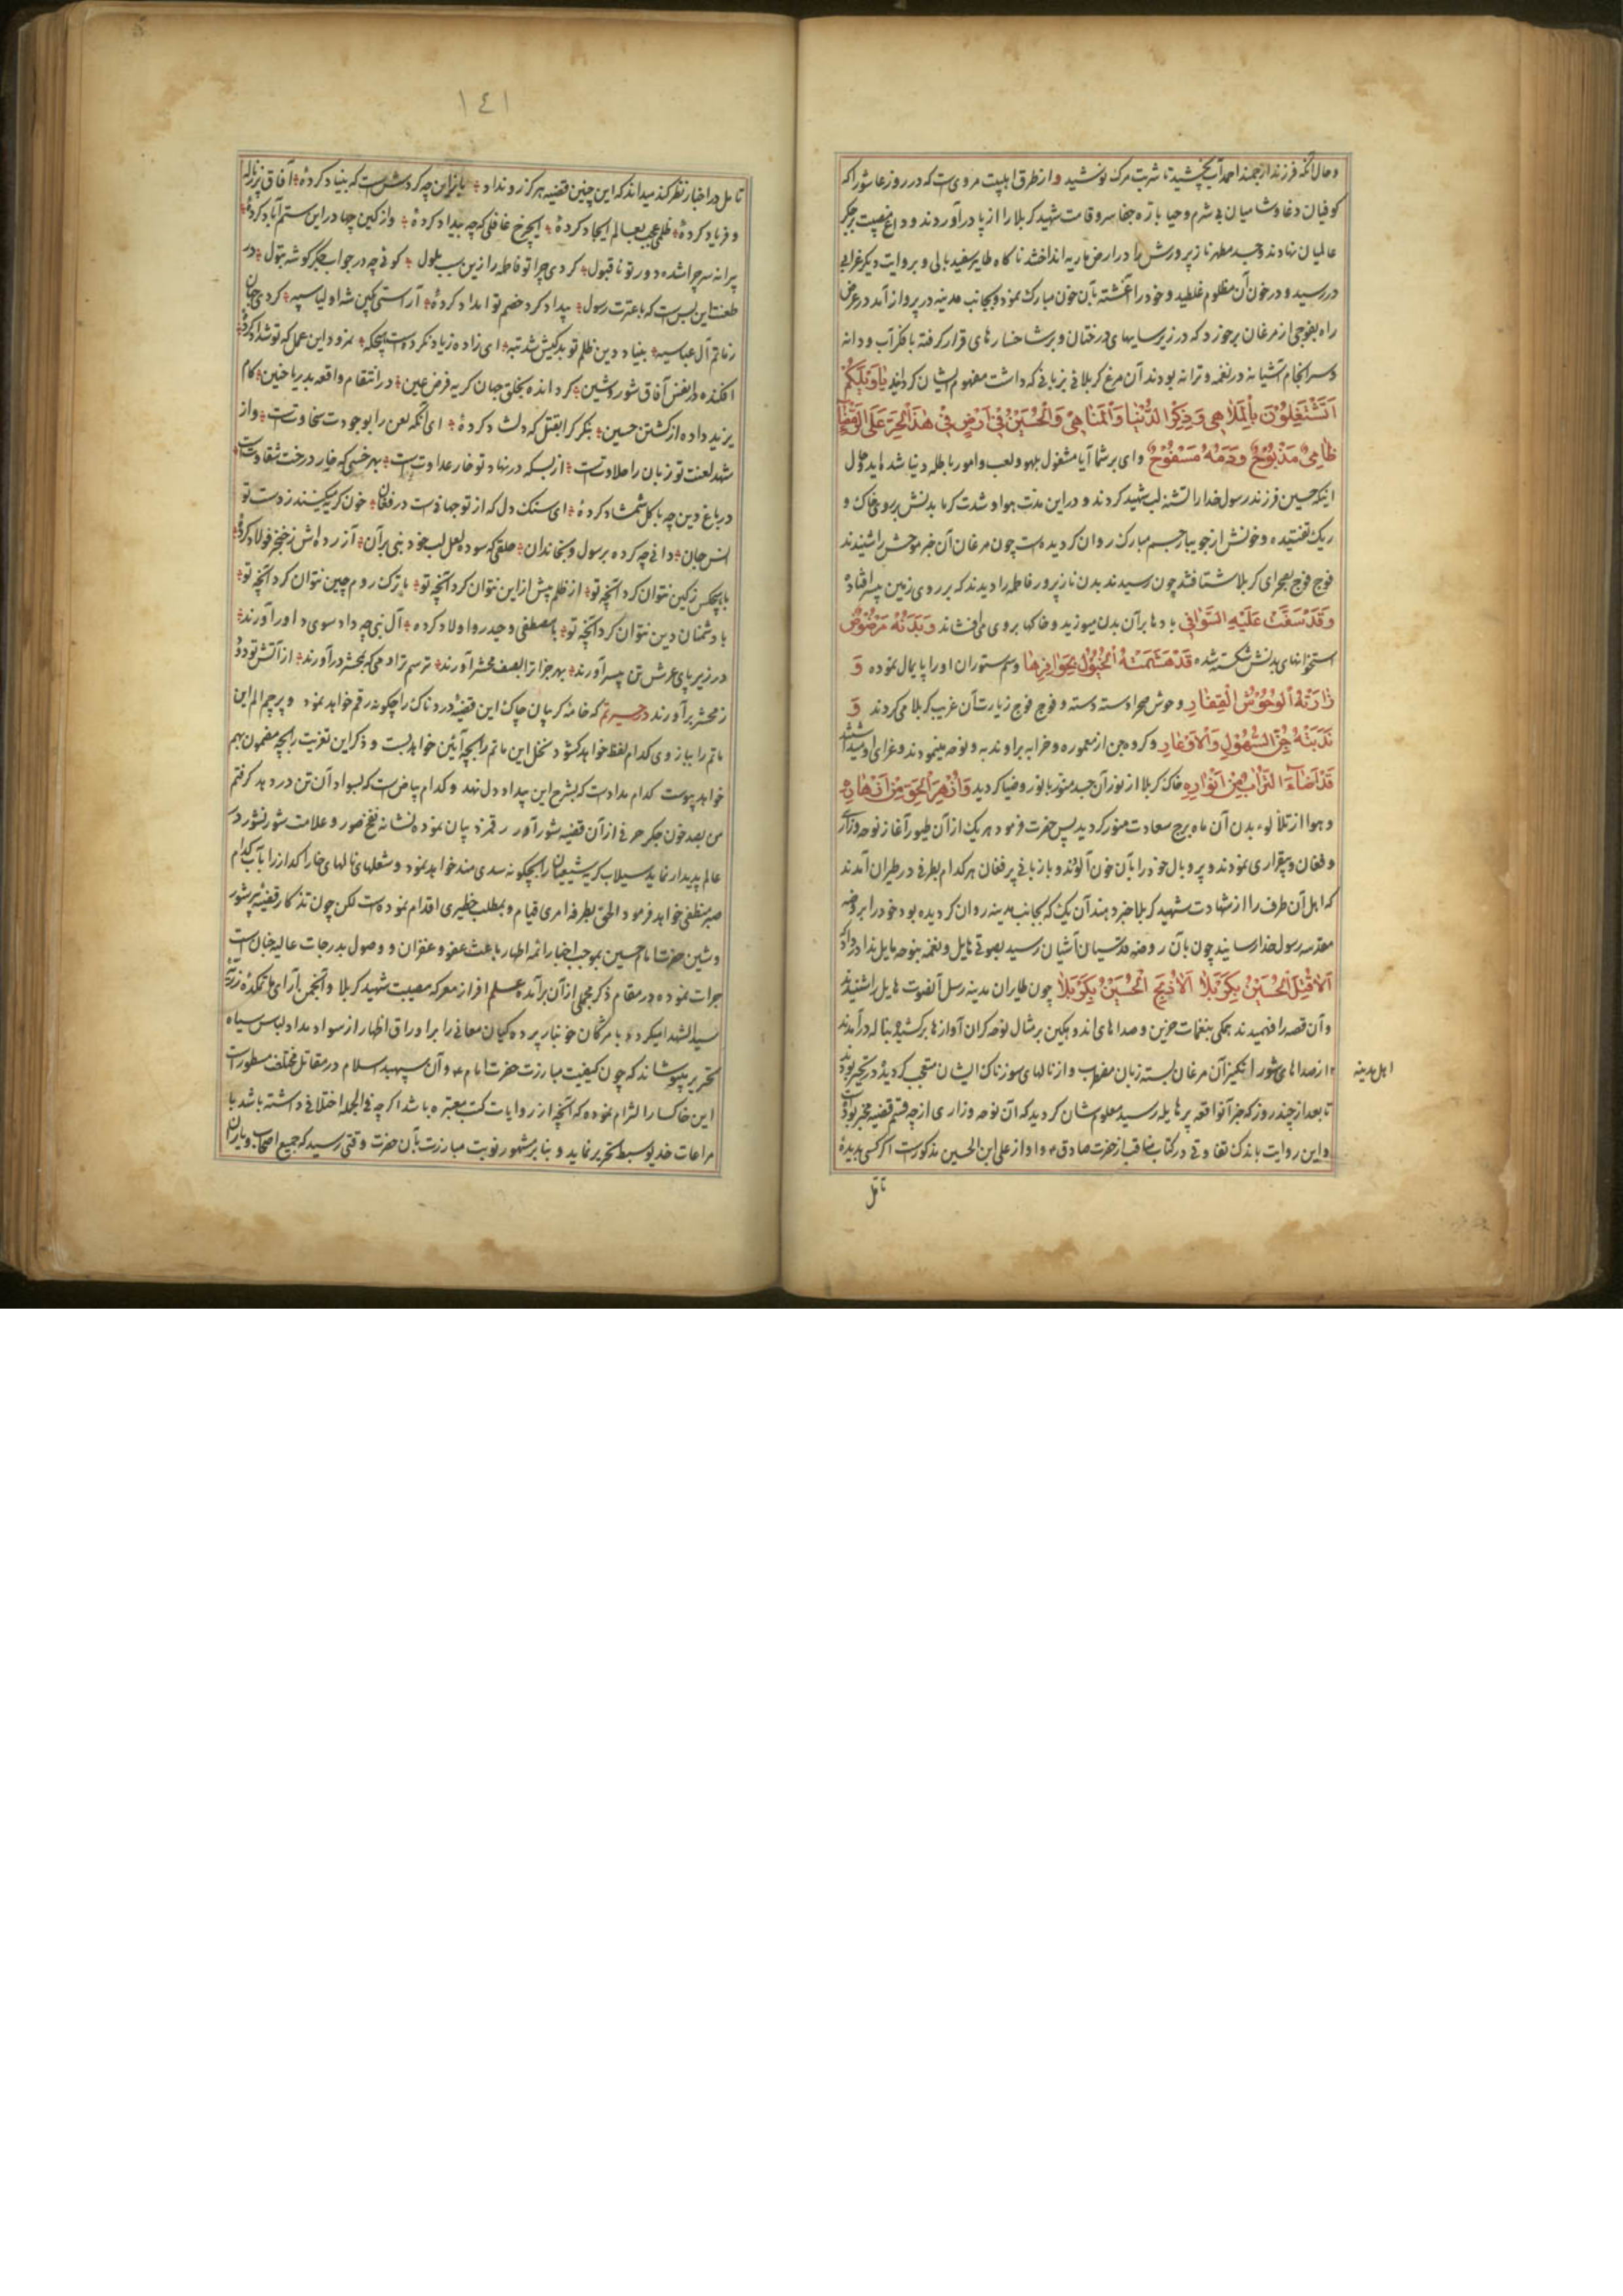 و حال آنکه فرزند ارجمند احمد آب نچشید تا شربت مرک نوشید و از طرق اهلبیت مرویست که در روز عاشورا که
کوفیان دغا و شامیان بی شرم و حیا بازه جفا سرو قامت شهید کربلا را از پا درآوردند و داغ مصیبت بر جکر
عالمیان نهادند و جسد مطهر ناز پرورش را در ارض ماریه انداختند ناکاه طایر سفید بالی و بروایت دیکر غرابی
در رسید و در خون آن مظلوم غلطید و خود را آغشته بآن خون مبارک نمود و بجانب مدینه در پرواز آمد در عرض
راه بفوجی از مرغان برخورد که در زیر سایهای درختان و بر شاخسارهای قرار کرفته با فکر آب و دانه
و سرانجام آشیانه در نغمه و ترانه بودند آن مرغ کربلائی بزبانی که داشت مفهوم ایشان کردانید یا وَیْلَکُمْ
اَتَشْتَغِلُوْنَ بِالْمَلاهِی وَ ذِکْرِ الدُّنْیا وَ الْمَناهِیْ وَ الْحُسَیْنُ فِیْ اَرْضٍ فِیْ هٰذَا الْحَرِّ مُلْقیً عَلَی الرَّمْضاءِ
ظامِیٌ مَذْبُوْحٌ وَ دَمُهُ مَسْفُوْحٌ وای بر شما آیا مشغول بلهو و لعب و امور باطله دنیا شده‌اید و حال
اینکه حسین فرزند رسول خدا را تشنه لب شهید کردند و در این مدت هوا و شدت کرما بدنش بر روی خاک و
ریک تفتیده و خونش از جویبار جسم مبارک روان کردیده است چون مرغان آن خبر موحش را شنیدند
فوج فوج بصحرای کربلا شتافتند چون رسیدند بدن ناز پرور فاطمه را دیدند که بر روی زمین بیسر افتاده
وَقَدْ سَفَّتْ عَلَیْهِ السَّوافِی بادها بر آن بدن میوزید و خاکها بر روی می‌افشاند وَ بَدَنُهُ مَرْضُوْضٌ
استخوانهای بدنش شکسته شده قَدْ هَشَّمَتْهُ الْخُیُوْلُ بِحَوافِرِها و سم ستوران او را پایمال نموده وَ
زارَتْهُ الْوُحُوْشُ الْقِفارِ وحوش صحرا دسته دسته و فوج فوج زیارت آن غریب کربلا میکردند وَ
نَدَبَتْهُ جِنُّ السُّهُوْلِ وَالْاَوْعارِ و کروه جن از معموره و خرابه بر او ندبه و نوحه مینمودند و عزای او میداشتند
قَدْ اَضاءَ التُّرابُ مِنْ اَنْوارِهِ خاک کربلا از نور آن جسد منور با نور و ضیا کردید وَ اَزْهَرَ الْجَوُّ مِنْ اَزْهارِهِ
و هوا از تلألؤ بدن آن ماه برج سعادت منور کردید پس حضرت فرمود هر یک از آن طیور آغاز نوحه و زاری
و فغان و بیقراری نمودند و پر و بال خود را بآن خون آلودند و با زبانی پر فغان هر کدام بطرفی در طیران آمدند
که اهل آن طرف را از شهادت شهید کربلا خبر دهند آن یک که بجانب مدینه روان کردیده بود خود را بروضه
مقدسه رسول خدا رسانید چون بآن روضه قدسیان آشیان رسید بصوتی هایل و نغمه بنوحه مایل ندا در داد که
اَلا قُتِلَ الْحُسَیْنُ بِکَرْبَلا اَلا ذُبِحَ الْحُسَیْنُ بِکَرْبَلا چون طایران مدینه رسل آنصوت هایل را شنیدند
و آن قصه را فهمیدند همکی بنغمات حزین و صداهای اندوهکین بر مثال نوحه کران آوازها برکشیده بناله درآمدند
اهل مدینه
از صداهای شورانکیز آن مرغان بسته زبان مضطرب و از نالهای سوزناک ایشان متعجب کردیده در تحیر بودند
تا بعد از چند روز که خبر آنواقعه پر هایله رسید معلومشان کردید که آن نوحه و زاری از چه قسم قضیه مخبر بوده است
و این روایت باندک تفاوتی در کتاب مناقب از حضرت صادق ع و او از علی ابن الحسین مذکور است اکر کسی بدیده
تامل
١٤١
تامل در اخبار نظر کند میداند که این چنین قضیه هرکز رو نداد یارب این چه کردش است که بنیاد کردهٔ آفاق پر ز ناله
و فریاد کردهٔ ظلمی عجب بعالم ایجاد کردهٔ ایچرخ غافلی که چه بیداد کردهٔ واز کین چها در این ستم آباد کردهٔ
پیرانه سر چرا شده دور تو ناقبول کردی چرا تو فاطمه را زین سبب ملول کوئی چه در جواب جکر کوشه بتول در
طعنت این بس است که با عترت رسول بیداد کرد خصم تو امداد کردهٔ آراستی بکین شه اولیا سپه کردی جهان
ز ماتم آل عبا سیه بنیاد دین ظلم تو بدکیش شد تبه ای زاده زیاد نکرده است هیچکه نمرود این عمل که تو شداد کردهٔ
افکنده در انفس آفاق شور و شین کرد انده بخلق جهان کریه فرض عین در انتقام واقعه بدر یا حنین کام
یزید داده از کشتن حسین بنکر کرا بقتل که دلشاد کردهٔ ای آنکه لعن را بوجودت سخاوتست واز
شهد لعنت تو زبان را حلاوتست از بسکه در نهاد تو خار عداوت است بهر خسی که خار درخت شقاوتست
در باغ دین چه با کل شمشاد کردهٔ ای سنک دل که از تو جهانست در فغان خون کریه میکنند ز دست تو
انس و جان دانی چه کرده برسول و بخاندان حلقی که سوده لعل لب خود نبی بر آن آزرده‌اش ز خنجر فولاد کردهٔ
با هیچکس ز کین نتوان کرد آنچه تو از ظلم بیش از این نتوان کرد آنچه تو با ترک روم و چین نتوان کرد آنچه تو
با دشمنان دین نتوان کرد آنچه تو با مصطفی و حیدر و اولاد کرده آل نبی چه داد سوی داور آورند
در زیر پای عرش تن بیسر آورند بهر جزا ترا بصف محشر آورند ترسم ترا دمی که بمحشر درآورند از آتش تو دود
ز محشر برآورند در حیرتم که خامه کریبان چاک این قضیهٔ دردناک را چکونه رقم خواهد نمود و پرچم الم این
ماتم را ببازوی کدام لفظ خواهد کشود نخل این ماتم را بچه آئین خواهد بست و ذکر این تعزیت را بچه مضمون بهم
خواهد پیوست کدام مداد است که بشرح این بیداد دل نهد و کدام بیاض است که بسواد آن تن در دهد کرفتم
من بصد خون جکر حرفی از آن قضیه شورآور رقمزد بیان نموده نشانه نفخ صور و علامت شور نشور در
عالم پدیدار نماید سیلاب کریه شیعیان را بچکونه سدی سد خواهد نمود و شعلهای نالهای خارا کداز را بآب کدام
صبر منطفی خواهد فرمود الحق بطرفه امری قیام و بمطلب خطیری اقدام نموده است لکن چون تذکار قضیهٔ پر شور
و شین حضرت امام حسین بموجب اخبار ائمه اطهار باعث عفو و غفران و وصول بدرجات عالیه جنانست
جرات نموده در مقام ذکر مجملی از آن برآمده علم افراز معرکه مصیبت شهید کربلا و انجمن آرای ماتمکدهٔ رزیه
سید الشهدا میکردد و با مژکان خونبار پرده کیان معانی را بر اوراق اظهار از سواد مداد لباس سیاه
تحریر بپوشاند که چون کیفیت مبارزت حضرت امام ع و آن سپهبد اسلام در مقاتل مختلف مسطور است
این خاکسار التزام نموده که آنچه از روایات کتب معتبره باشد اکر چه فی الجمله اختلافی داشته باشد با
مراعات قید بوسیط تحریر نماید و بنا بر مشهور نوبت مبارزت بآن حضرت وقتی رسید که جمیع اصحاب و یاران